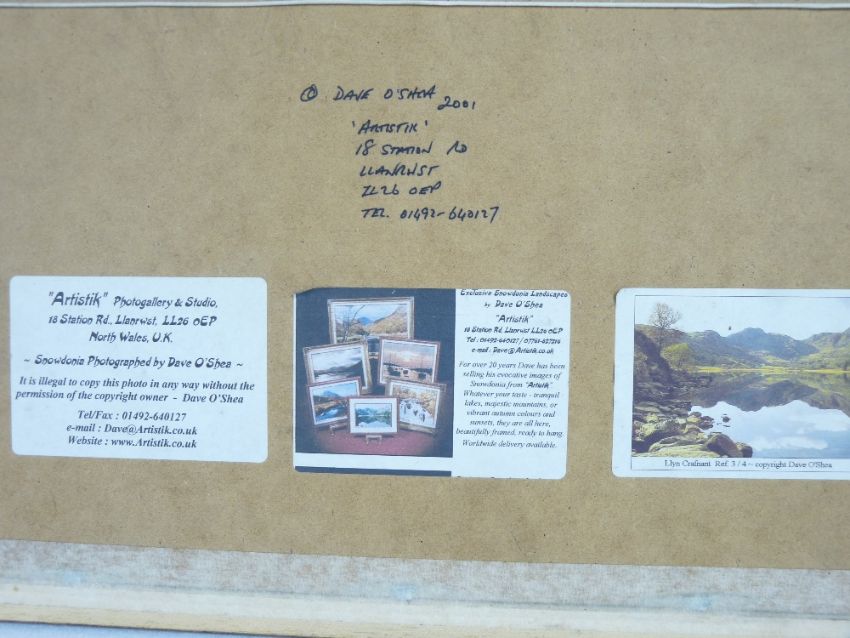 © DAVE O'SHEA 2001
'ARTISTIK'
18 STATION RD
LLANRWST
LL26 0EP
TEL. 01492-640127
"Artistik" Photogallery & Studio,
18 Station Rd., Llanrwst, LL26 0EP
North Wales, U.K.
~ Snowdonia Photographed by Dave O'Shea ~
It is illegal to copy this photo in any way without the
permission of the copyright owner - Dave O'Shea
Tel/Fax : 01492-640127
e-mail : Dave@Artistik.co.uk
Website : www.Artistik.co.uk
Exclusive Snowdonia Landscapes
by Dave O'Shea
"Artistik"
18 Station Rd. Llanrwst LL26 0EP
Tel : 01492-640127 /
e-mail : Dave@Artistik.co.uk
For over 20 years Dave has been
selling his evocative images of
Snowdonia from "Artistik".
Whatever your taste - tranquil
lakes, majestic mountains, or
vibrant autumn colours and
sunsets, they are all here,
beautifully framed, ready to hang.
Worldwide delivery available.
Llyn Crafnant Ref. 3 / 4 ~ copyright Dave O'Shea